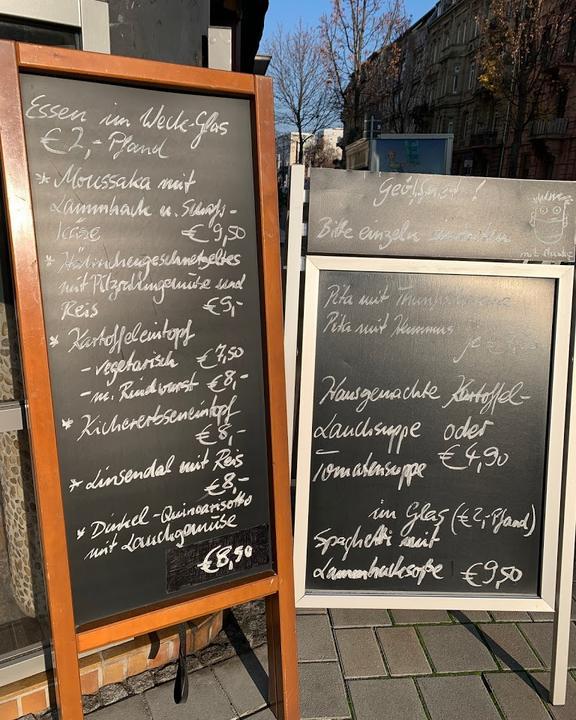 Essen im Weck-Glas
€2,- Pfand
* Moussaka mit
Lammhack u. Schafs-
käse €9,50
* Hähnchengeschnetzeltes
mit Pilzrahmgemüse und
Reis €9,-
* Kartoffeleintopf
- vegetarisch €7,50
- m. Rindwurst €8,-
* Kichererbseneintopf
€8,-
* Linsendal mit Reis
€8,-
* Dinkel-Quinoarisotto
mit Lauchgemüse
€8,50
Geöffnet!
Bitte einzeln eintreten
mit Maske
Pita mit
Pita mit Hummus
je
Hausgemachte Kartoffel-
Lauchsuppe oder
Tomatensuppe €4,90
im Glas (€2,-Pfand)
Spaghetti mit
Lammhacksoße €9,50